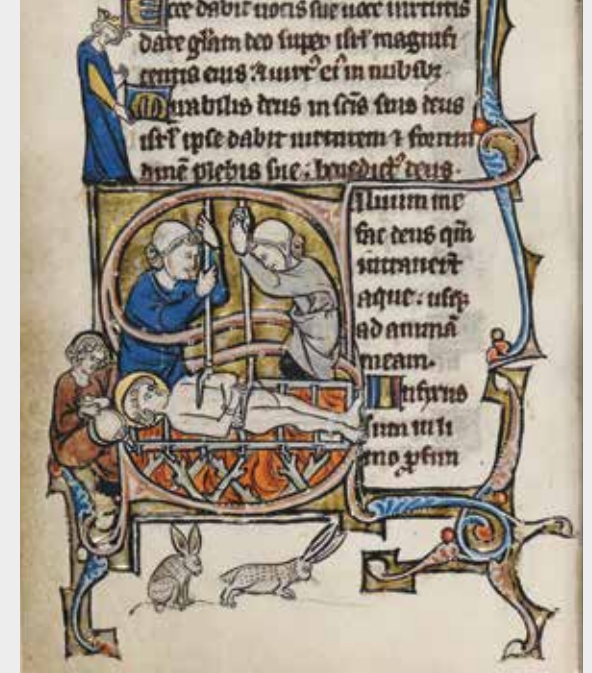 Ecce dabit uocis sue uoce uirtutis
date gl̃am deo super isrl̃ magnifi
centia eius
Mirabilis deus in sc̃is suis deus
isrl̃ ipse dabit uirtutem ⁊
dinẽ plebis sue: benedictꝰ deus.
Saluum me
fac deus qm̃
intrauer̃t
aque: usqꝫ
ad animã
meam.
Infixus
sum in li
mo ꝓfun